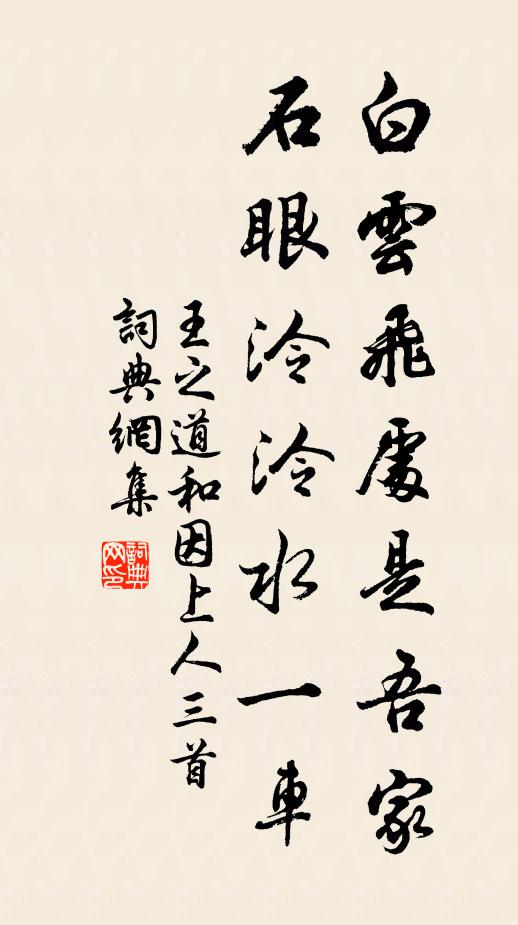 白雲飛處是吾家
石眼泠泠水一車
王之道和因上人三首
詞典網集
詞典网印